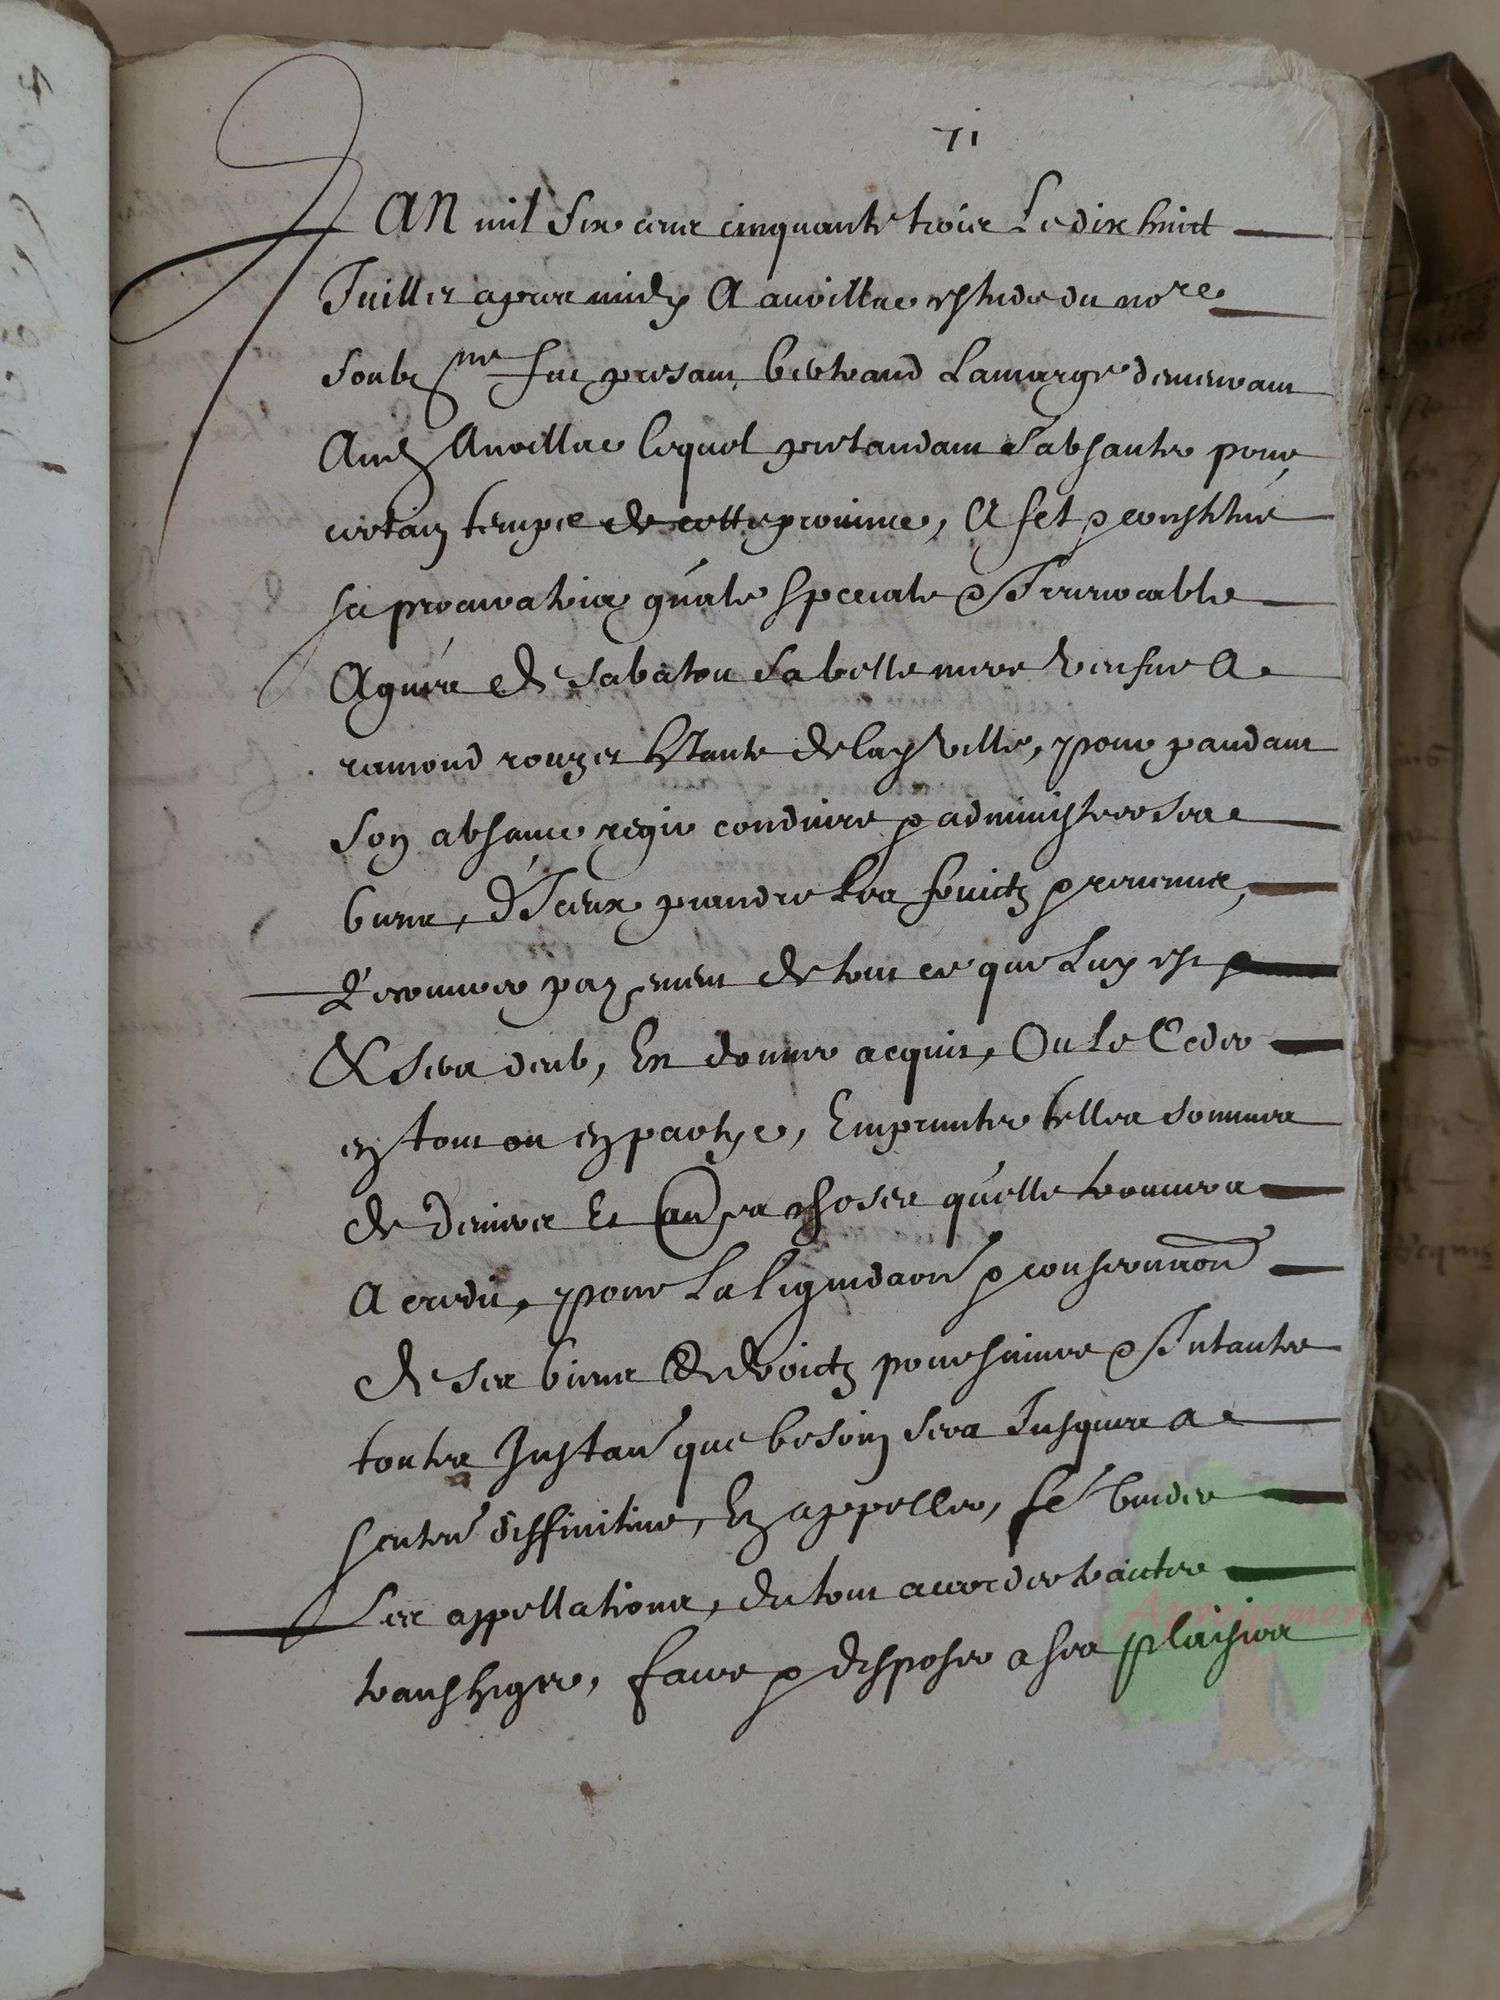 71
L'AN mil six cens cinquante trois Le dix huict
Juillet apres midy A auvillar estude du nore
soubz.ne fut presant bertrand Lamarge demeurant
Aud Auvillar lequel pretandant s'absanter pour
certain temps de cette province, A fet & constitué
sa procuratrix gnale speciale & Irrevocable
Agnes de sabatou sa belle mere veufve A
ramond rouzet htante de lad ville, pour pandant
son absance regir conduire & administrer ses
biens, d'Iceux prandre les fruictz & revenus,
Recouvrer payement de tout ce que Luy est
& sera deub, En donner acquit, Ou le Ceder
en tout ou en partye, Emprunter telles sommes
de deniers Et autres choses qu'elle trouvera
A credit, pour La liquidaon & conservaon
de ses biens & droictz poursuivre & Intanter
toutes Instan que besoin sera Jusques a
senten diffinitive, En appeller, se vuider
Les appellations, du tout accorder traicter
transhiger, faire & disposer a ses plaisirs
Aprogemere